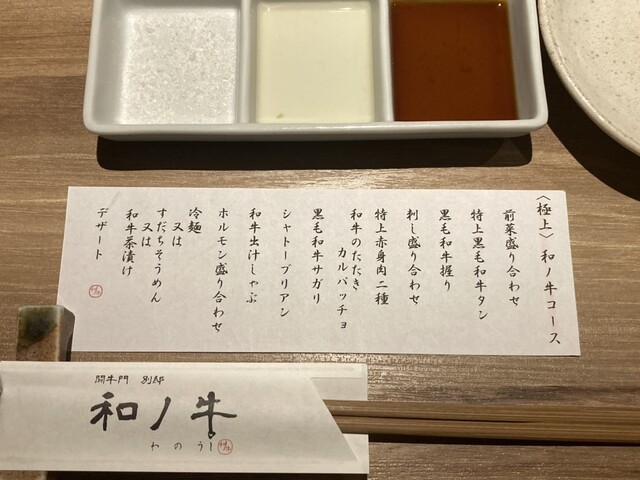 〈極上〉 和ノ牛コース
前菜盛り合わせ
特上黒毛和牛タン
黒毛和牛握り
刺し盛り合わせ
特上赤身肉二種
和牛のたたき
カルパッチョ
黒毛和牛サガリ
シャトーブリアン
和牛出汁しゃぶ
ホルモン盛り合わせ
冷麺
又は
すだちそうめん
又は
和牛茶漬け
デザート
闘牛門 別邸
和ノ牛
わのうし